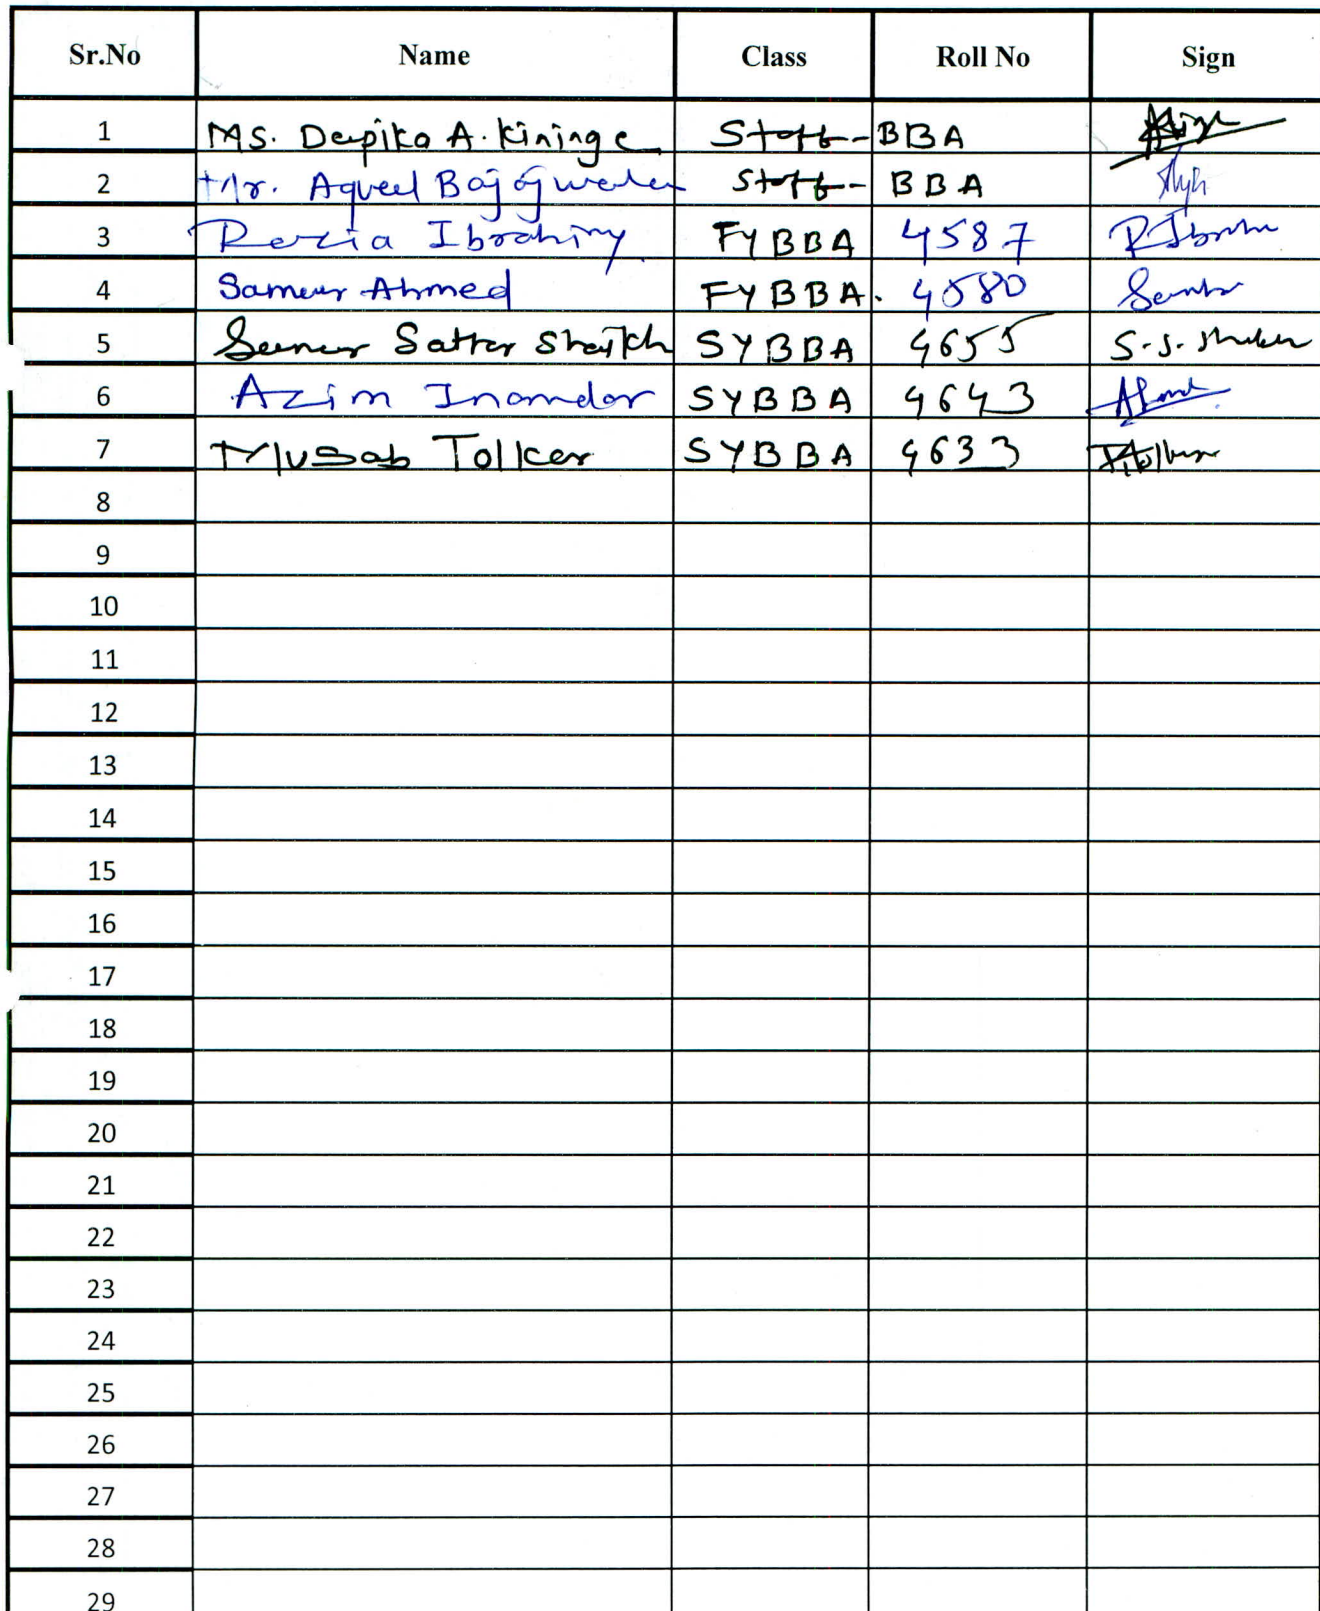 Sr.No Name Class Roll No Sign
1 Ms. Depika A. Kininge Staff- BBA
2 Mr. Aqueel Staff- BBA
3 Rezia Ibrahimy FYBBA 4587
4 Sameer Ahmed FYBBA. 4580
5 Sameer Sattar Shaikh SYBBA 4655 S.S. Shaikh
6 Azim Inamdar SYBBA 4643
7 Musab Tolker SYBBA 4633
8
9
10
11
12
13
14
15
16
17
18
19
20
21
22
23
24
25
26
27
28
29